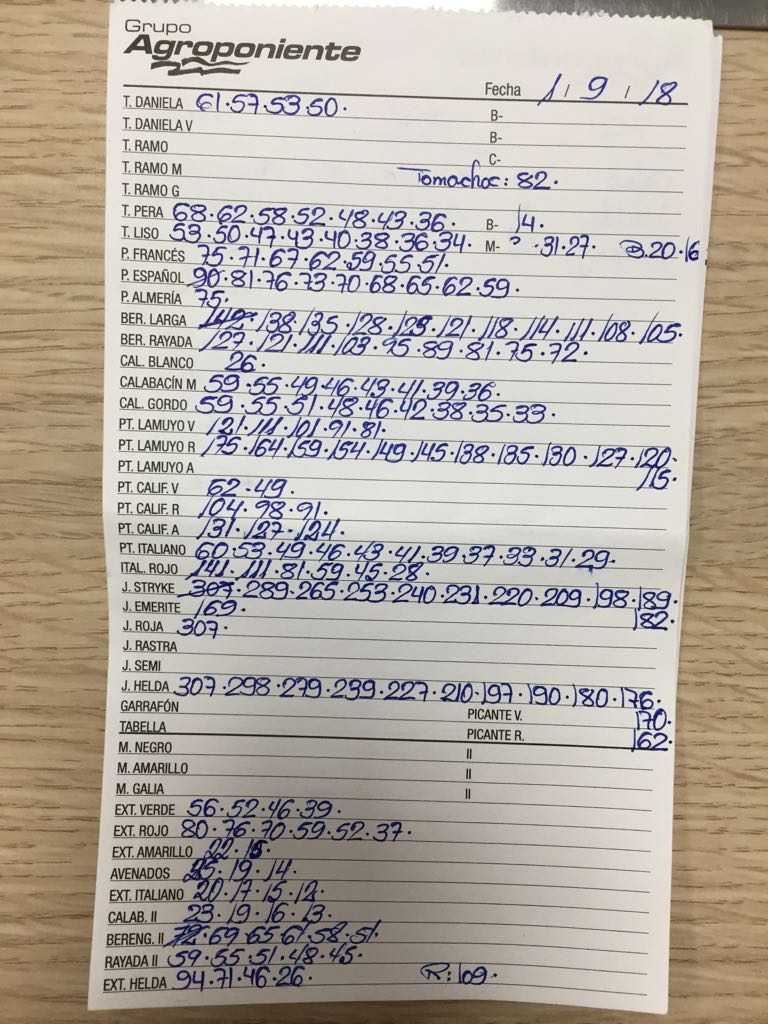 Grupo
Agroponiente
Fecha 1 / 9 / 18
T. DANIELA 61.57.53.50. B-
T. DANIELA V B-
T. RAMO C-
T. RAMO M Tomachoc: 82.
T. RAMO G
T. PERA 68.62.58.52.48.43.36. B- 14.
T. LISO 53.50.47.43.40.38.36.34. M- .31.27. B.20.16
P. FRANCÉS 75.71.67.62.59.55.51.
P. ESPAÑOL 90.81.76.73.70.68.65.62.59.
P. ALMERÍA 75.
BER. LARGA 142.138.135.128.125.121.118.114.111.108.105.
BER. RAYADA 127.121.111.103.95.89.81.75.72.
CAL. BLANCO 26.
CALABACÍN M 59.55.49.46.43.41.39.36.
CAL. GORDO 59.55.51.48.46.42.38.35.33.
PT. LAMUYO V 121.111.101.91.81.
PT. LAMUYO R 175.164.159.154.149.145.138.135.130.127.120.
PT. LAMUYO A 115.
PT. CALIF. V 62.49.
PT. CALIF. R 104.98.91.
PT. CALIF. A 131.127.124.
PT. ITALIANO 60.53.49.46.43.41.39.37.33.31.29.
ITAL. ROJO 141.111.81.59.45.28.
J. STRYKE 307.289.265.253.240.231.220.209.198.189.
J. EMERITE 169. 182.
J. ROJA 307.
J. RASTRA
J. SEMI
J. HELDA 307.298.279.239.227.210.197.190.180.176.
GARRAFÓN PICANTE V. 170.
TABELLA PICANTE R. 162.
M. NEGRO II
M. AMARILLO II
M. GALIA II
EXT. VERDE 56.52.46.39.
EXT. ROJO 80.76.70.59.52.37.
EXT. AMARILLO 22.
AVENADOS 25.19.14.
EXT. ITALIANO 20.17.15.12.
CALAB. II 23.19.16.13.
BERENG. II 72.69.65.61.58.51.
RAYADA II 59.55.51.48.45.
EXT. HELDA 94.71.46.26. R: 109.